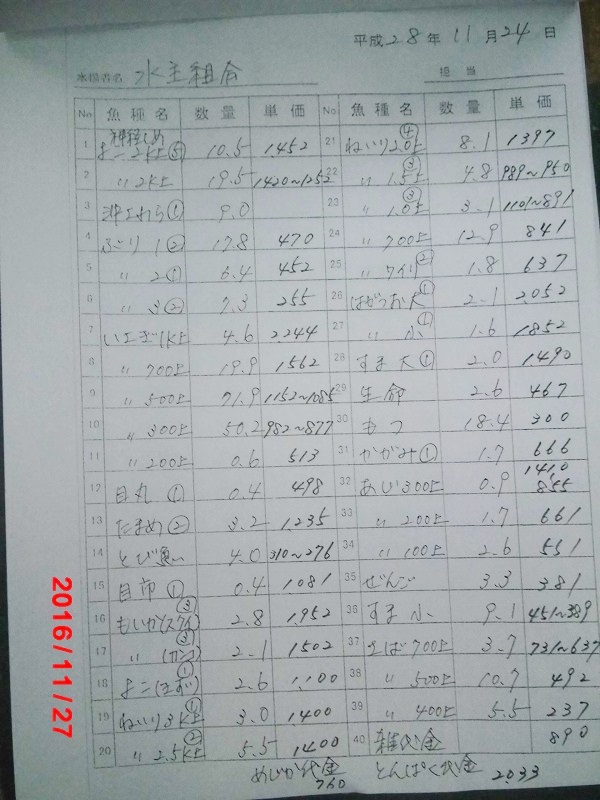 平成 28 年 11 月 24 日
水揚者名 水主組合 担当
No 魚種名 数量 単価
神経じめ
1 よこ2K上⑤ 10.5 1,452
2 〃2K上 19.5 1420~1252
3 沖エれら① 9.0
4 ぶり 1② 17.8 470
5 〃 2① 6.4 452
6 〃 3② 7.3 255
7 いさぎ1K上 4.6 2244
8 〃700上 19.9 1562
9 〃500上 71.9 1152~1085
10 〃300上 50.2 982~877
11 〃200上 0.6 513
12 目丸① 0.4 498
13 たまめ② 3.2 1,235
14 とび魚 4.0 310~276
15 目市① 0.4 1081
16 もいか(スケイ)③ 2.8 1,952
17 〃 ③ 2.1 1502
18 よこ(はず)① 2.6 1,100
19 ねいり3K上① 3.0 1,400
20 〃2.5K上② 5.5 1400
No 魚種名 数量 単価
21 ねいり2.0上④ 8.1 1397
22 〃1.5上③ 4.8 989~950
23 〃1.0上③ 3.1 1101~891
24 〃700上 12.9 841
25 〃ワイリ② 1.8 637
26 はがつお大① 2.1 2,052
27 〃 小① 1.6 1852
28 すま大① 2.0 1490
29 生節 2.6 467
30 もつ 18.4 300
31 かがみ① 1.7 666
32 あじ300上 0.9 1410 855
33 〃200上 1.7 661
34 〃100上 2.6 551
35 ぜんご 3.3 381
36 すま小 9.1 451~389
37 さば700上 3.7 731~637
38 〃500上 10.7 492
39 〃400上 5.5 237
40 雑代金 890
めじか代金 760 とんぱく代金 2,033
2016/11/27